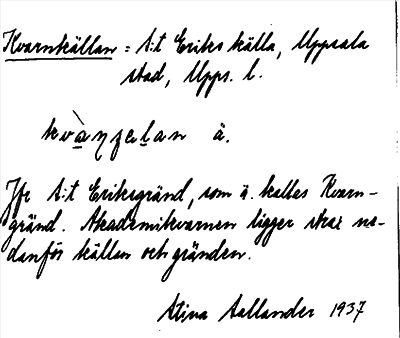 Kvarnkällan = S:t Eriks källa, Uppsala
stad, Upps. l.
kvà̱ɳɟɛḻan ä.
Jfr S:t Eriksgränd, som ä. kallas Kvarn-
gränd. Akademikvarnen ligger strax ne-
danför källan och gränden.
Stina Sallander 1937